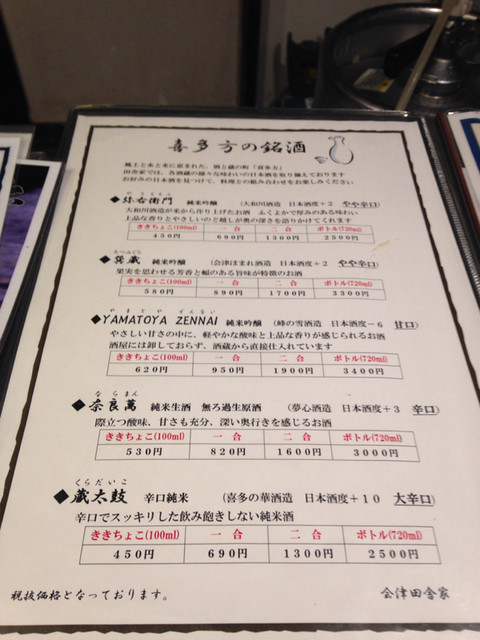 喜多方の銘酒
風土と水と米に恵まれた、酒と蔵の町「喜多方」
田舎家では、各酒蔵の様々な味わいの日本酒を取り揃えております
お好みの日本酒を見つけて、料理との組み合わせをお楽しみください
やうえもん
◆弥右衛門 純米吟醸 (大和川酒造 日本酒度+2 やや辛口)
大和川酒造が米から作り上げたお酒 ふくよかで厚みのある味わい
上品な香りとやさしいのど越しが奥の深さを語りかけてくれます
ききちょこ(100ml) 一合 二合 ボトル(720ml)
450円 690円 1300円 2500円
純米吟醸 (会津ほまれ酒造 日本酒度+2 やや辛口)
果実を思わせる芳香と幅のある旨味が特徴のお酒
ききちょこ(100ml) 一合 二合 ボトル(720ml)
580円 890円 1700円 3300円
やまとや ぜんない
◆YAMATOYA ZENNAI 純米吟醸 (峰の雪酒造 日本酒度-6 甘口)
やさしい甘さの中に、軽やかな酸味と上品な香りが感じられるお酒
酒屋には卸しておらず、酒蔵から直接仕入れています
ききちょこ(100ml) 一合 二合 ボトル(720ml)
620円 950円 1900円 3400円
ならまん
◆奈良萬 純米生酒 無ろ過生原酒 (夢心酒造 日本酒度+3 辛口)
際立つ酸味、甘さも充分、深い奥行きを感じるお酒
ききちょこ(100ml) 一合 二合 ボトル(720ml)
530円 820円 1600円 3000円
くらだいこ
◆蔵太鼓 辛口純米 (喜多の華酒造 日本酒度+10 大辛口)
辛口でスッキリした飲み飽きしない純米酒
ききちょこ(100ml) 一合 二合 ボトル(720ml)
450円 690円 1300円 2500円
税抜価格となっております。 会津田舎家